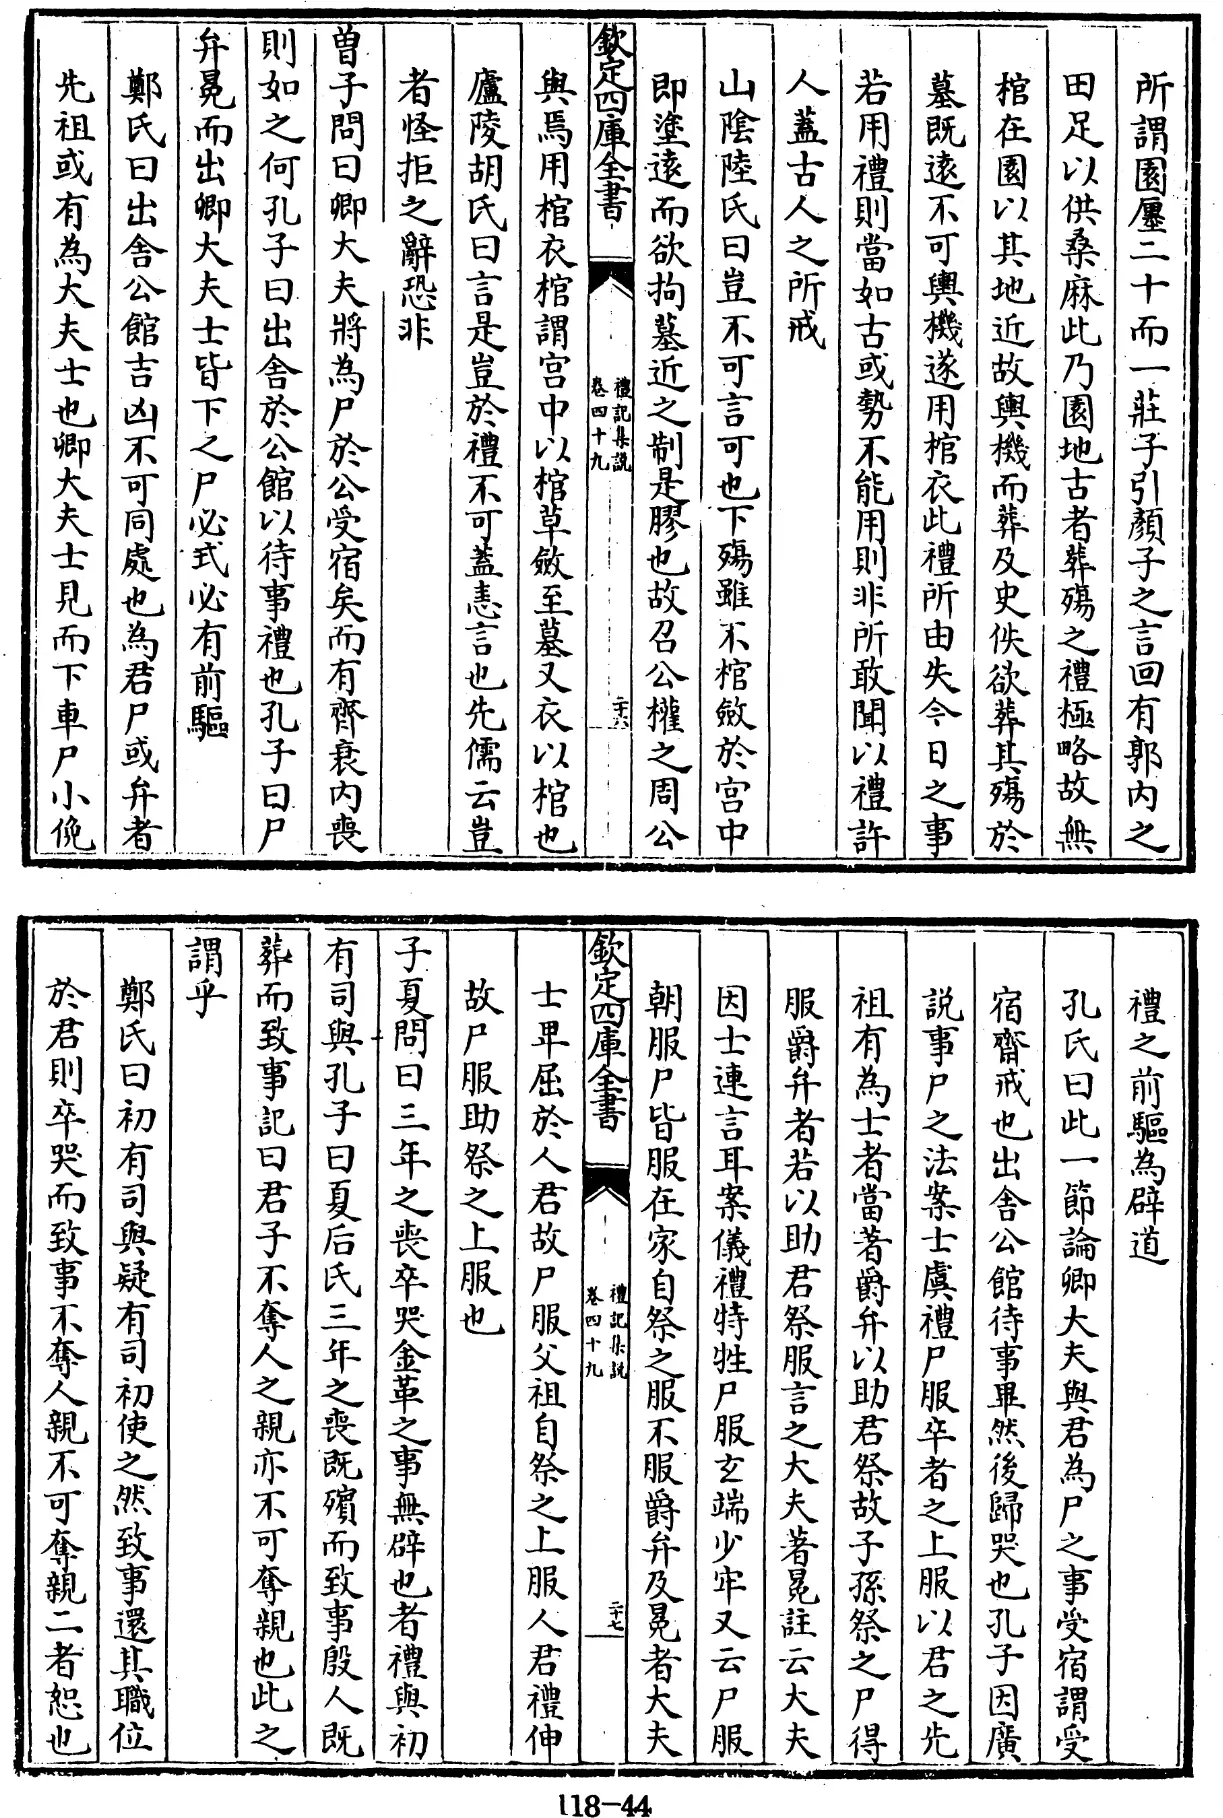 所謂園廛二十而一莊子引顏子之言回有郭内之
田足以供桑麻此乃園地古者葬殤之禮極略故無
棺在園以其地近故輿機而葬及史佚欲葬其殤於
墓既逺不可輿機遂用棺衣此禮所由失今日之事
若用禮則當如古或勢不能用則非所敢聞以禮許
人蓋古人之所戒
山陰陸氏曰豈不可言可也下殤雖不棺斂於宫中
即塗逺而欲拘墓近之制是膠也故召公權之周公
欽定四庫全書
禮記集説
卷四十九
二十六
與焉用棺衣棺謂宫中以棺草斂至墓又衣以棺也
廬陵胡氏曰言是豈於禮不可蓋恚言也先儒云豈
者怪拒之辭恐非
曽子問曰卿大夫將為尸於公受宿矣而有齊衰内喪
則如之何孔子曰出舍於公館以待事禮也孔子曰尸
弁冕而出卿大夫士皆下之尸必式必有前驅
鄭氏曰出舍公館吉凶不可同處也為君尸或弁者
先祖或有為大夫士也卿大夫士見而下車尸小俛
禮之前驅為辟道
孔氏曰此一節論卿大夫與君為尸之事受宿謂受
宿齋戒也出舍公館待事畢然後歸哭也孔子因廣
説事尸之法案士虞禮尸服卒者之上服以君之先
祖有為士者當著爵弁以助君祭故子孫祭之尸得
服爵弁者若以助君祭服言之大夫著冕註云大夫
因士連言耳案儀禮特牲尸服玄端少牢又云尸服
朝服尸皆服在家自祭之服不服爵弁及冕者大夫
欽定四庫全書
禮記集説
卷四十九
二十七
士卑屈於人君故尸服父祖自祭之上服人君禮伸
故尸服助祭之上服也
子夏問曰三年之喪卒哭金革之事無辟也者禮與初
有司與孔子曰夏后氏三年之喪既殯而致事殷人既
葬而致事記曰君子不奪人之親亦不可奪親也此之
謂乎
鄭氏曰初有司與疑有司初使之然致事還其職位
於君則卒哭而致事不奪人親不可奪親二者恕也
118-44